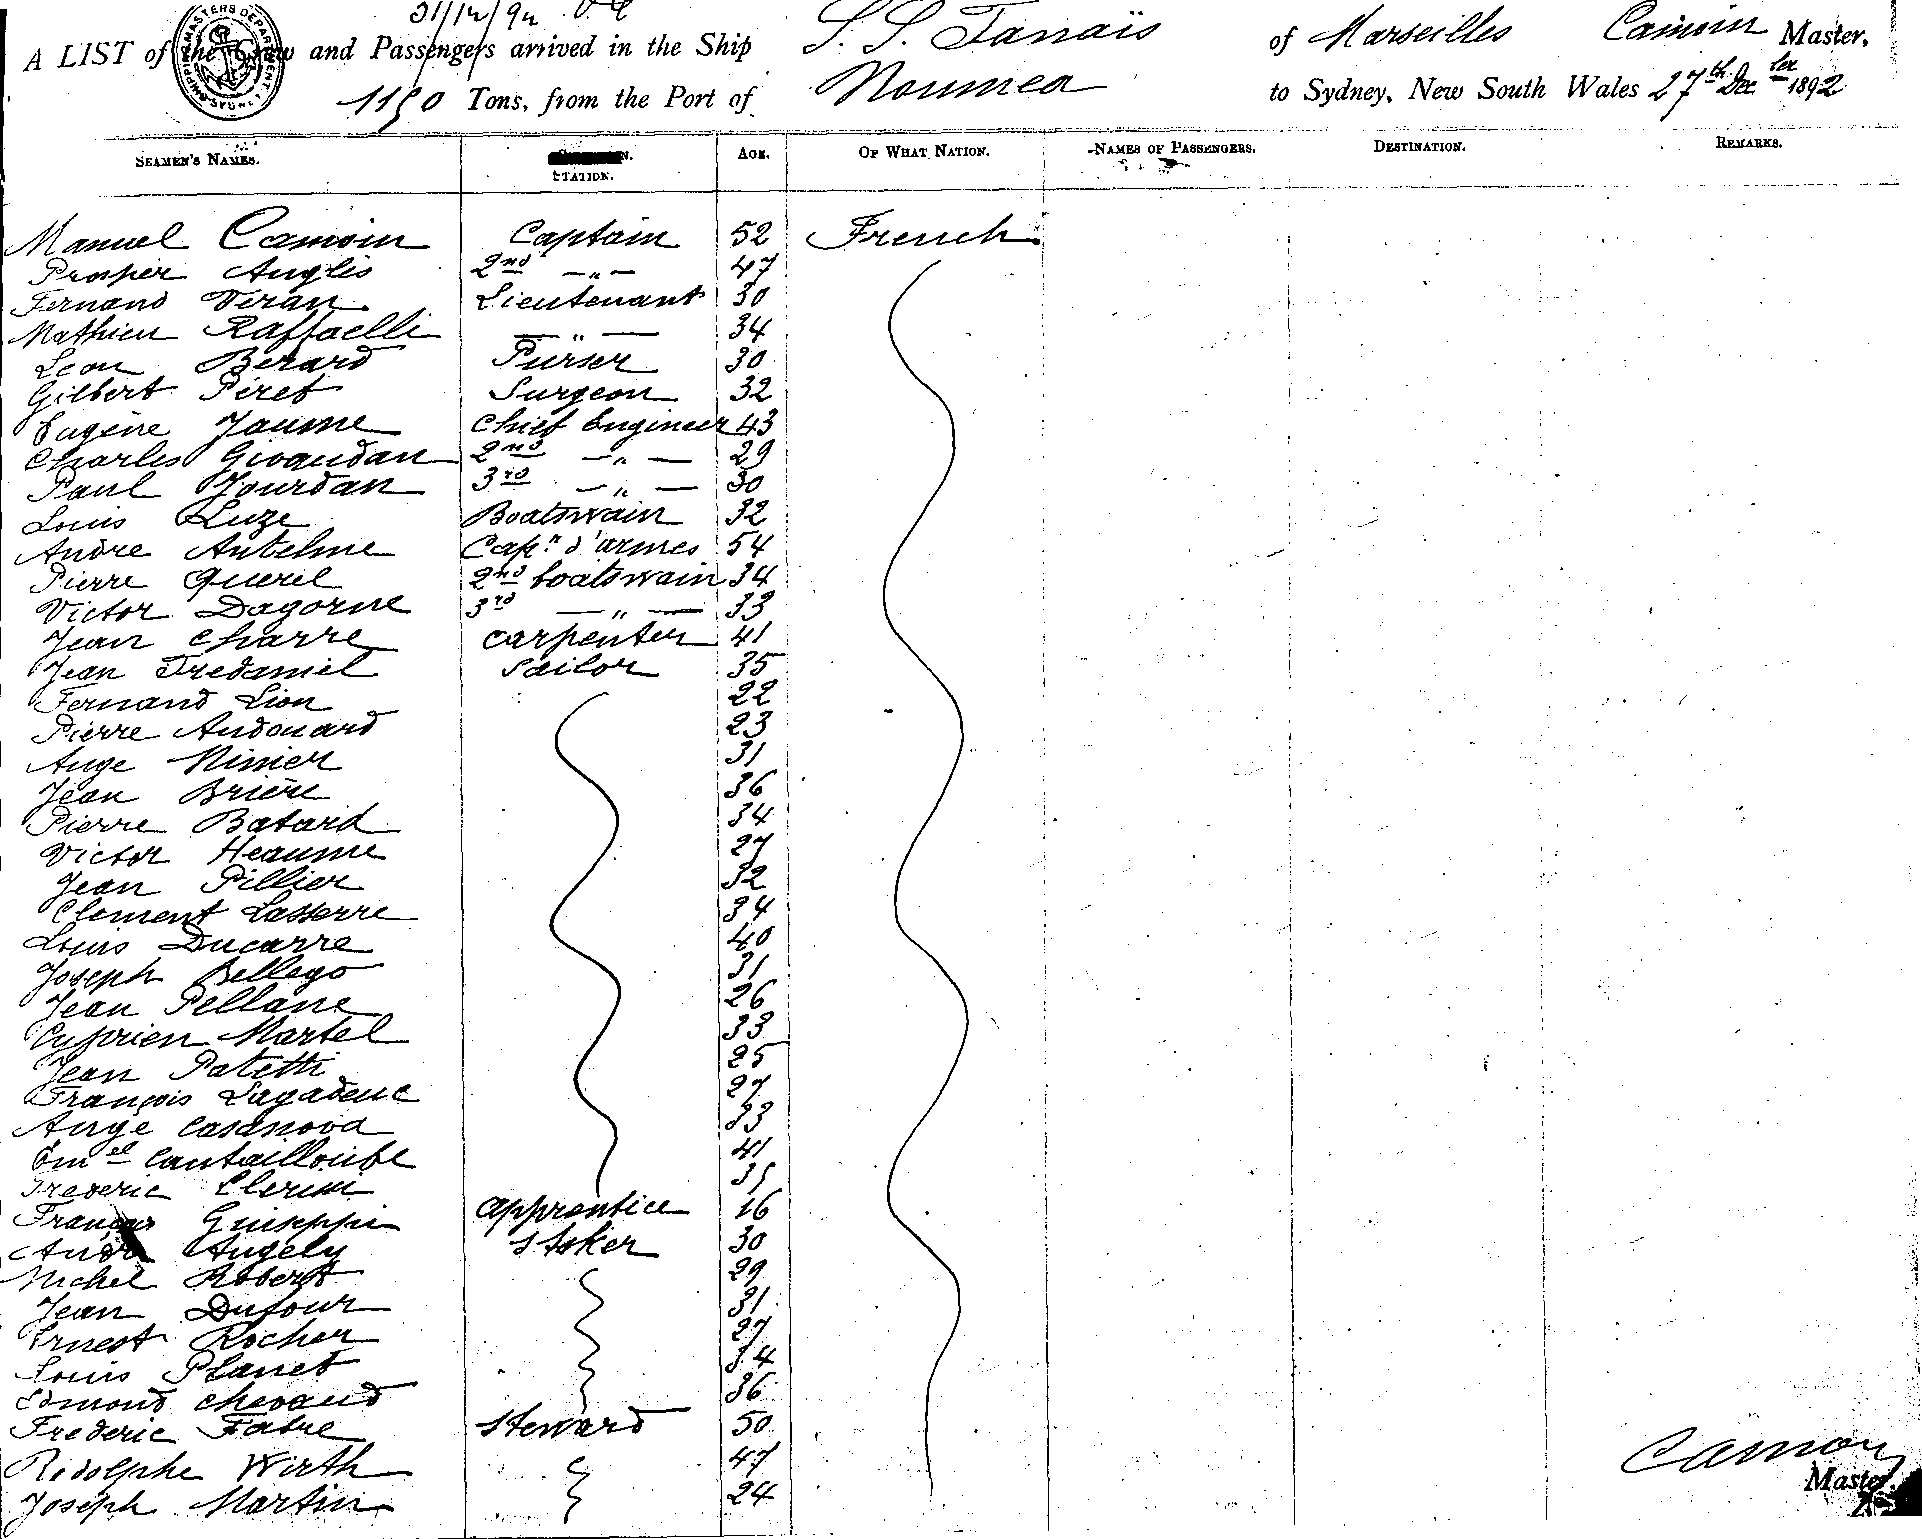 31/12/92
SHIPPING MASTERS DEPARTMENT SYDNEY
A LIST of the Crew and Passengers arrived in the Ship S. S. Tanaïs of Marseilles Camoin Master,
1150 Tons, from the Port of Noumea to Sydney, New South Wales 27th Decber 1892
SEAMEN'S NAMES. STATION. AGE. OF WHAT NATION. NAMES OF PASSENGERS. DESTINATION. REMARKS.
Manuel Camoin Captain 52 French
Prosper Anglès 2nd —"— 47
Fernand Veran Lieutenant 30
Mathieu Raffaelli —"— 34
Leon Berard Purser 30
Gilbert Piret Surgeon 32
Eugène Jaume Chief Engineer 43
Charles Givaudan 2nd —"— 29
Paul Jourdan 3rd —"— 30
Louis Luze Boatswain 32
Andre Antelme Capn d'armes 54
Pierre Queril 2nd boatswain 34
Victor Dagorne 3rd —"— 33
Jean Charre Carpenter 41
Jean Tredaniel Sailor 35
Fernand Lion 22
Pierre Audouard 23
Ange Minier 31
Jean Brière 36
Pierre Batard 34
Victor Heaume 27
Jean Pillier 32
Clement Lasserre 34
Louis Ducarre 40
Joseph Bellego 31
Jean Pellane 26
Cyprien Martel 33
Jean Patetti 25
François Lagadeuc 27
Ange Casanova 33
Emel Cantailloube 41
Frederic Clerissi 35
François Guiseppi apprentice 16
André Angely Stoker 30
Michel Robert 29
Jean Dufour 31
Ernest Rocher 27
Louis Planet 34
Edmond Chevaud 36
Frederic Fabre Steward 50
Rodolphe Wirth 47
Joseph Martin 24
Camoin
Master.